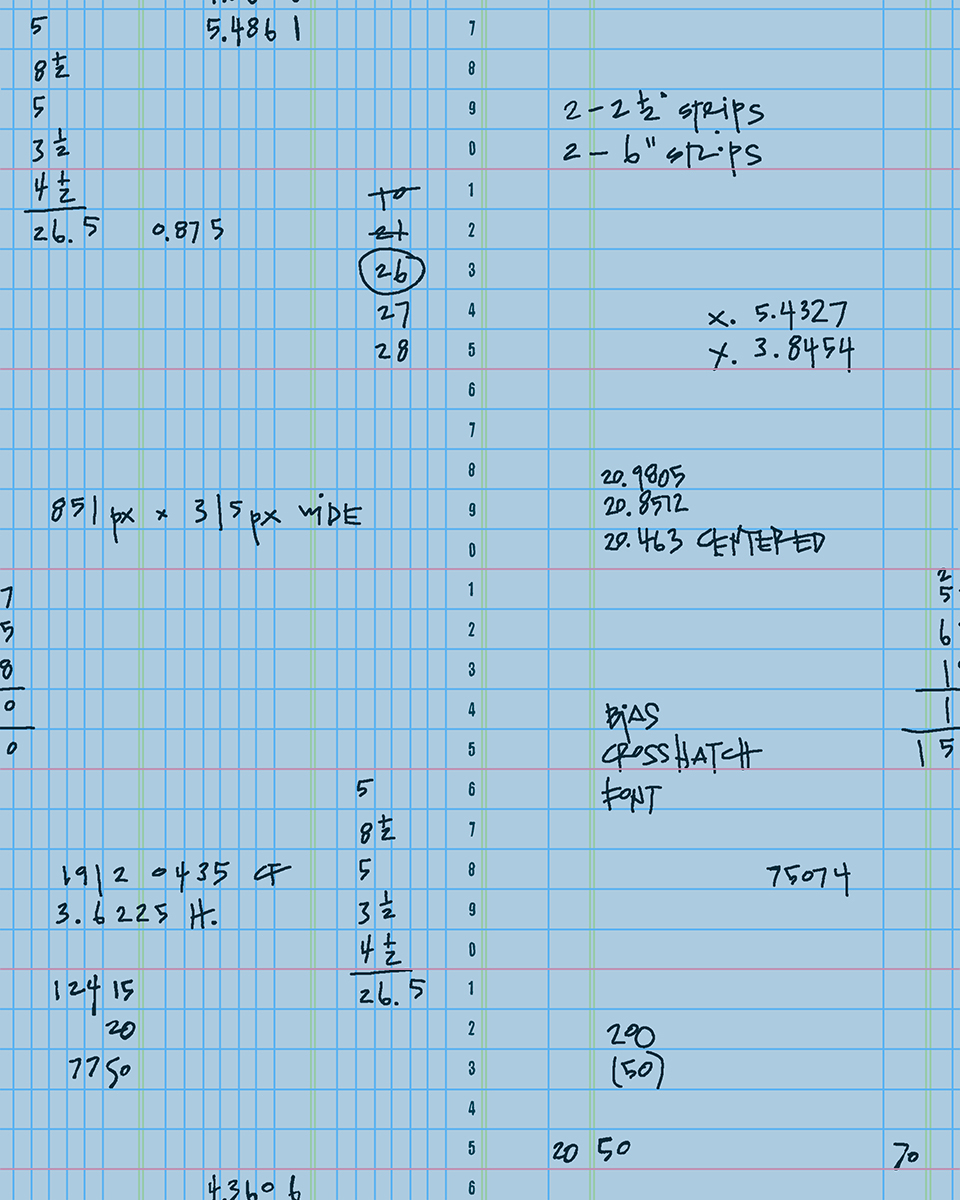 5
8 1/2
5
3 1/2
4 1/2
26.5
0.875
5.4861
10
21
26
27
28
851 px x 315 px WIDE
7
5
8
0
0
1912 0435 CF
3.6225 H.
124 15
20
7750
5
8 1/2
5
3 1/2
4 1/2
26.5
4.3606
7
8
9
0
1
2
3
4
5
6
7
8
9
0
1
2
3
4
5
6
7
8
9
0
1
2
3
4
5
6
2 - 2 1/2" STRIPS
2 - 6" STRIPS
X. 5.4327
Y. 3.8454
20.9805
20.8512
20.463 CENTERED
BIAS
CROSSHATCH
FONT
75074
200
(50)
20 50
70
2
5
6
1
1
15